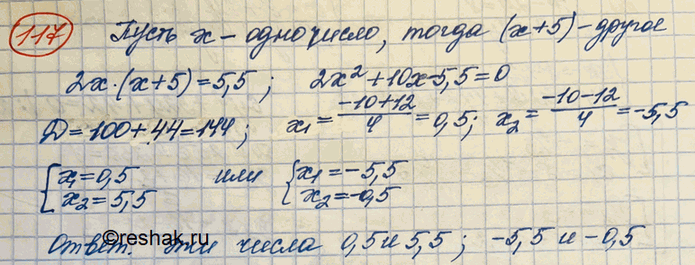 117 Пусть x - одно число, тогда (x+5) - другое
2x·(x+5)=5,5; 2x²+10x-5,5=0
D=100+44=144; x₁=(-10+12)/4=0,5; x₂=(-10-12)/4=-5,5
{x₁=0,5 x₂=5,5 или {x₁=-5,5 x₂=-0,5
Ответ. Эти числа 0,5 и 5,5; -5,5 и -0,5
©reshak.ru